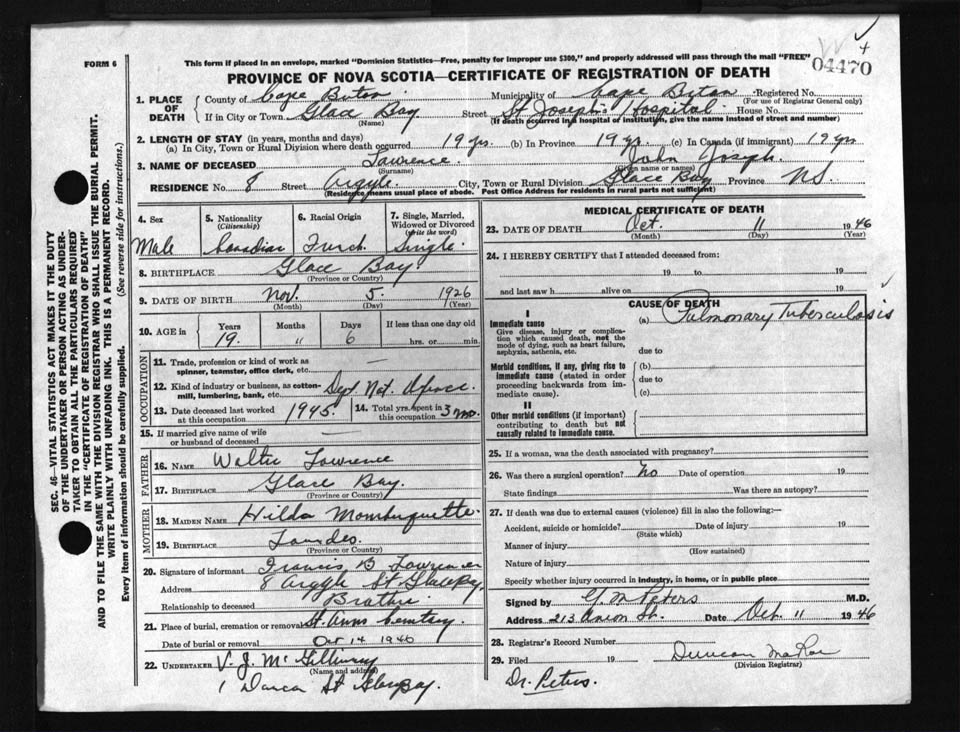 FORM 6
This form if placed in an envelope, marked "Dominion Statistics—Free, penalty for improper use $300," and properly addressed will pass through the mail "FREE"
04470
PROVINCE OF NOVA SCOTIA—CERTIFICATE OF REGISTRATION OF DEATH
1. PLACE OF DEATH
County of Cape Breton Municipality of Cape Breton Registered No.
(For use of Registrar General only)
If in City or Town Glace Bay Street St Joseph's Hospital House No.
(Name) (If death occurred in a hospital of institution, give the name instead of street and number)
2. LENGTH OF STAY (in years, months and days)
(a) In City, Town or Rural Division where death occurred 19 yrs. (b) In Province 19 yr. (c) In Canada (if immigrant) 19 yrs
3. NAME OF DECEASED Lawrence John Joseph
(Surname) (Given name or names)
RESIDENCE No. 8 Street Argyle City, Town or Rural Division Glace Bay Province N.S.
(Residence means usual place of abode. Post Office Address for residents in rural parts not sufficient)
4. Sex
Male
5. Nationality
(Citizenship)
Canadian
6. Racial Origin
French
7. Single, Married, Widowed or Divorced
(write the word)
Single
8. BIRTHPLACE Glace Bay
(Province or Country)
9. DATE OF BIRTH Nov. 5 1926
(Month) (Day) (Year)
10. AGE in
Years Months Days If less than one day old
19. " 6 hrs. or min.
OCCUPATION
11. Trade, profession or kind of work as spinner, teamster, office clerk, etc. —
12. Kind of industry or business, as cotton-mill, lumbering, bank, etc. Dept Nat.
13. Date deceased last worked at this occupation 1945.
14. Total yrs. spent in this occupation 3 mo.
15. If married give name of wife or husband of deceased —
FATHER
16. NAME Walter Lawrence
17. BIRTHPLACE Glace Bay.
(Province or Country)
MOTHER
18. MAIDEN NAME Hilda Mombuquette.
19. BIRTHPLACE Lourdes.
(Province or Country)
20. Signature of informant Francis B Lawrence
Address 8 Argyle St Glace Bay,
Relationship to deceased Brother
21. Place of burial, cremation or removal St. Anns Cemetery.
Date of burial or removal Oct 14 1946
22. UNDERTAKER V. J. McGillivray
(Name and address)
St Glace Bay.
MEDICAL CERTIFICATE OF DEATH
23. DATE OF DEATH Oct. 11 1946
(Month) (Day) (Year)
24. I HEREBY CERTIFY that I attended deceased from:
19 to 19
and last saw h alive on 19
CAUSE OF DEATH
I
Immediate cause (a) Pulmonary Tuberculosis
Give disease, injury or complication which caused death, not the mode of dying, such as heart failure, asphyxia, asthenia, etc.
due to
Morbid conditions, if any, giving rise to immediate cause (stated in order proceeding backwards from immediate cause).
(b)
due to
(c)
II
Other morbid conditions (if important) contributing to death but not causally related to immediate cause.
25. If a woman, was the death associated with pregnancy?
26. Was there a surgical operation? No Date of operation 19
State findings Was there an autopsy?
27. If death was due to external causes (violence) fill in also the following:—
Accident, suicide or homicide? Date of injury 19
(State which)
Manner of injury
(How sustained)
Nature of injury
Specify whether injury occurred in industry, in home, or in public place
Signed by M Peters M.D.
Address 213 Union St. Date Oct. 11 1946
28. Registrar's Record Number
29. Filed 19 Duncan MacRae
(Division Registrar)
Dr. Peters.
SEC. 46—VITAL STATISTICS ACT MAKES IT THE DUTY
OF THE UNDERTAKER OR PERSON ACTING AS UNDER-
TAKER TO OBTAIN ALL THE PARTICULARS REQUIRED
IN THE "CERTIFICATE OF REGISTRATION OF DEATH"
AND TO FILE THE SAME WITH THE DIVISION REGISTRAR WHO SHALL ISSUE THE BURIAL PERMIT.
WRITE PLAINLY WITH UNFADING INK. THIS IS A PERMANENT RECORD.
Every item of information should be carefully supplied. (See reverse side for instructions.)